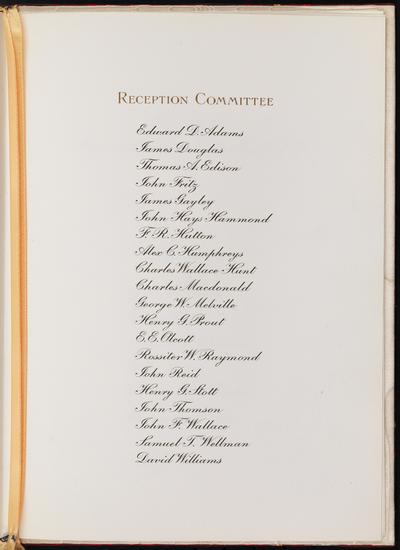 RECEPTION COMMITTEE
Edward D. Adams
James Douglas
Thomas A. Edison
John Fritz
James Gayley
John Hays Hammond
F. R. Hutton
Alex C. Humphreys
Charles Wallace Hunt
Charles Macdonald
George W. Melville
Henry G. Prout
E. E. Olcott
Rossiter W. Raymond
John Reid
Henry G. Stott
John Thomson
John F. Wallace
Samuel T. Wellman
David Williams